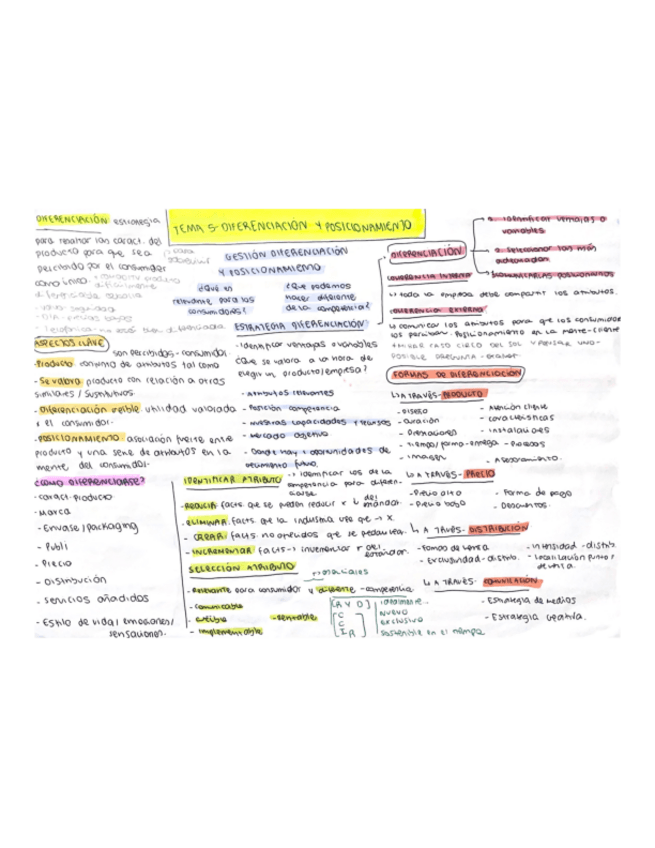 TEMA 5- DIFERENCIACIÓN Y POSICIONAMIENTO
DIFERENCIACIÓN estrategia
para resaltar las caract. del
producto para que sea
percibido por el consumidor
como único
ASPECTOS CLAVE
son percibidos - consumidor.
Producto conjunto de atributos tal como
- Se valora producto con relación a otros
similares / sustitutivos.
- Diferenciación creíble utilidad valorada
x el consumidor.
- POSICIONAMIENTO: asociación fuerte entre
producto y una serie de atributos en la
mente del consumidor.
¿CÓMO DIFERENCIARSE?
- Caract. producto
- Marca
- Envase / packaging
- Publi
- Precio
- Distribución
- Servicios añadidos
- Estilo de vida / emociones /
sensaciones.
GESTIÓN DIFERENCIACIÓN
Y POSICIONAMIENTO
¿Qué es
relevante para los
consumidores?
¿Qué podemos
hacer diferente
de la competencia?
ESTRATEGIA DIFERENCIACIÓN
- Identificar ventajas o variables
¿Que se valora a la hora de
elegir un producto/empresa?
- Atributos relevantes
- Posición competencia
- Nuestras capacidades y recursos
- Mercado objetivo
- Donde hay oportunidades de
crecimiento futuro.
IDENTIFICAR ATRIBUTO
identificar los de la
competencia para diferen-
ciarse
- REDUCIR facts que se pueden reducir x
- ELIMINAR facts que la industria
- CREAR facts no ofrecidos que se
- INCREMENTAR facts → incrementar x
estándar.
SELECCIÓN ATRIBUTO
- Relevante para consumidor y diferente - competencia
- Comunicable
- Creíble
- Rentable
- Implementable
nuevo
exclusivo
sostenible en el tiempo
DIFERENCIACIÓN
1. Identificar ventajas o
variables
2. Seleccionar las más
adecuadas
COHERENCIA INTERNA
↳ toda la empresa debe compartir los atributos.
COHERENCIA EXTERNA
↳ comunicar los atributos para que los consumidores
los perciban. Posicionamiento en la mente - cliente
FORMAS DE DIFERENCIACIÓN
↳ A TRAVÉS - PRODUCTO
- Diseño
- Duración
- Prestaciones
- Tiempo/forma - entrega
- Imagen
- Atención cliente
- Características
- Instalaciones
- Procesos
- Asesoramiento.
↳ A TRAVÉS - PRECIO
- Precio alto
- Precio bajo
- Forma de pago
- Descuentos.
↳ A TRAVÉS - DISTRIBUCIÓN
- Formas de venta
- Exclusividad - distrib.
- Intensidad - distrib.
- Localización puntos
de venta.
↳ A TRAVÉS - COMUNICACIÓN
- Estrategia de medios
- Estrategia creativa.